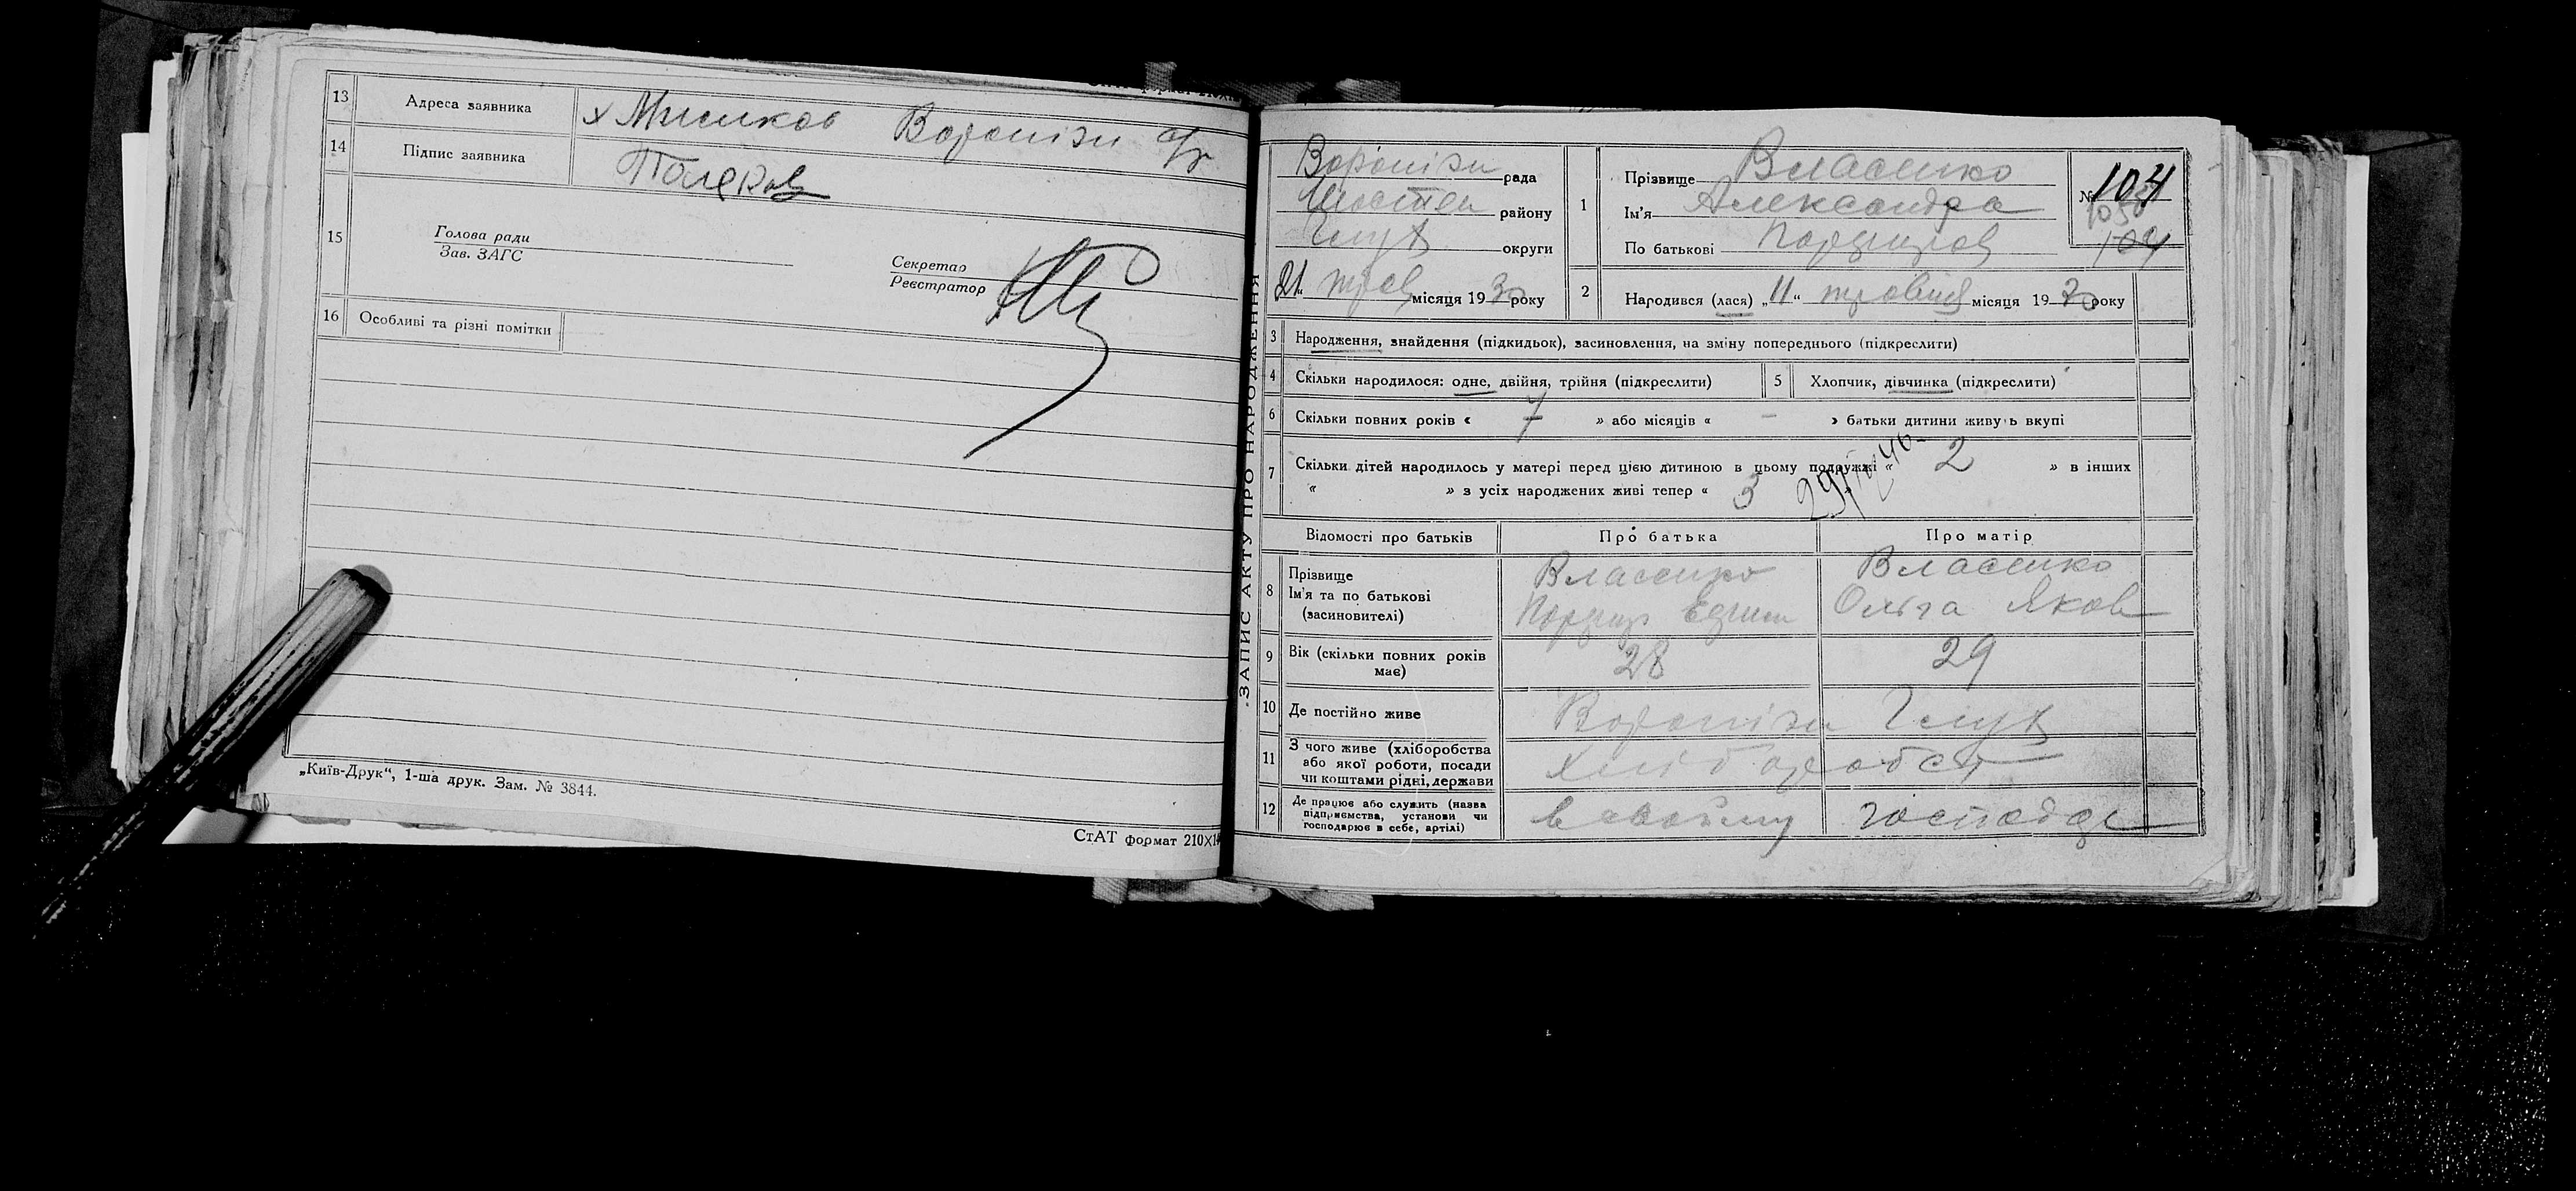 13 Адреса заявника х Мисиков Вороніжн с/р
14 Підпис заявника Поляков
15 Голова ради
Зав. ЗАГС
Секретар
Реєстратор
16 Особливі та різні помітки
„Київ-Друк“, 1-ша друк. Зам. № 3844.
СтАТ формат 210×1
ЗАПИС АКТУ ПРО НАРОДЖЕННЯ
Вороніжн рада
Шостен району
Глух округи
21 “ трав місяця 1930 року
1 Прізвище Власенко
Ім'я Александра
По батькові
№ 104
105
104
2 Народився (лася) „11“ травня місяця 1930 року
3 Народження, знайдення (підкидьок), засиновлення, на зміну попереднього (підкреслити)
4 Скільки народилося: одне, двійня, трійня (підкреслити)
5 Хлопчик, дівчинка (підкреслити)
6 Скільки повних років « 7 » або місяців « — » батьки дитини живуть вкупі
7 Скільки дітей народилось у матері перед цією дитиною в цьому подружжі « 2 » в інших
« » з усіх народжених живі тепер « 3
Відомості про батьків Про батька Про матір
8 Прізвище Власенко Власенко
Ім'я та по батькові Ольга Яков
(засновителі)
9 Вік (скільки повних років має) 28 29
10 Де постійно живе Вороніжн Глух
11 З чого живе (хліборобства або якої роботи, посади чи коштами рідні, держави Хліборобст
12 Де працює або служить (назва підприємства, установи чи господарює в себе, артілі) в своїму господ